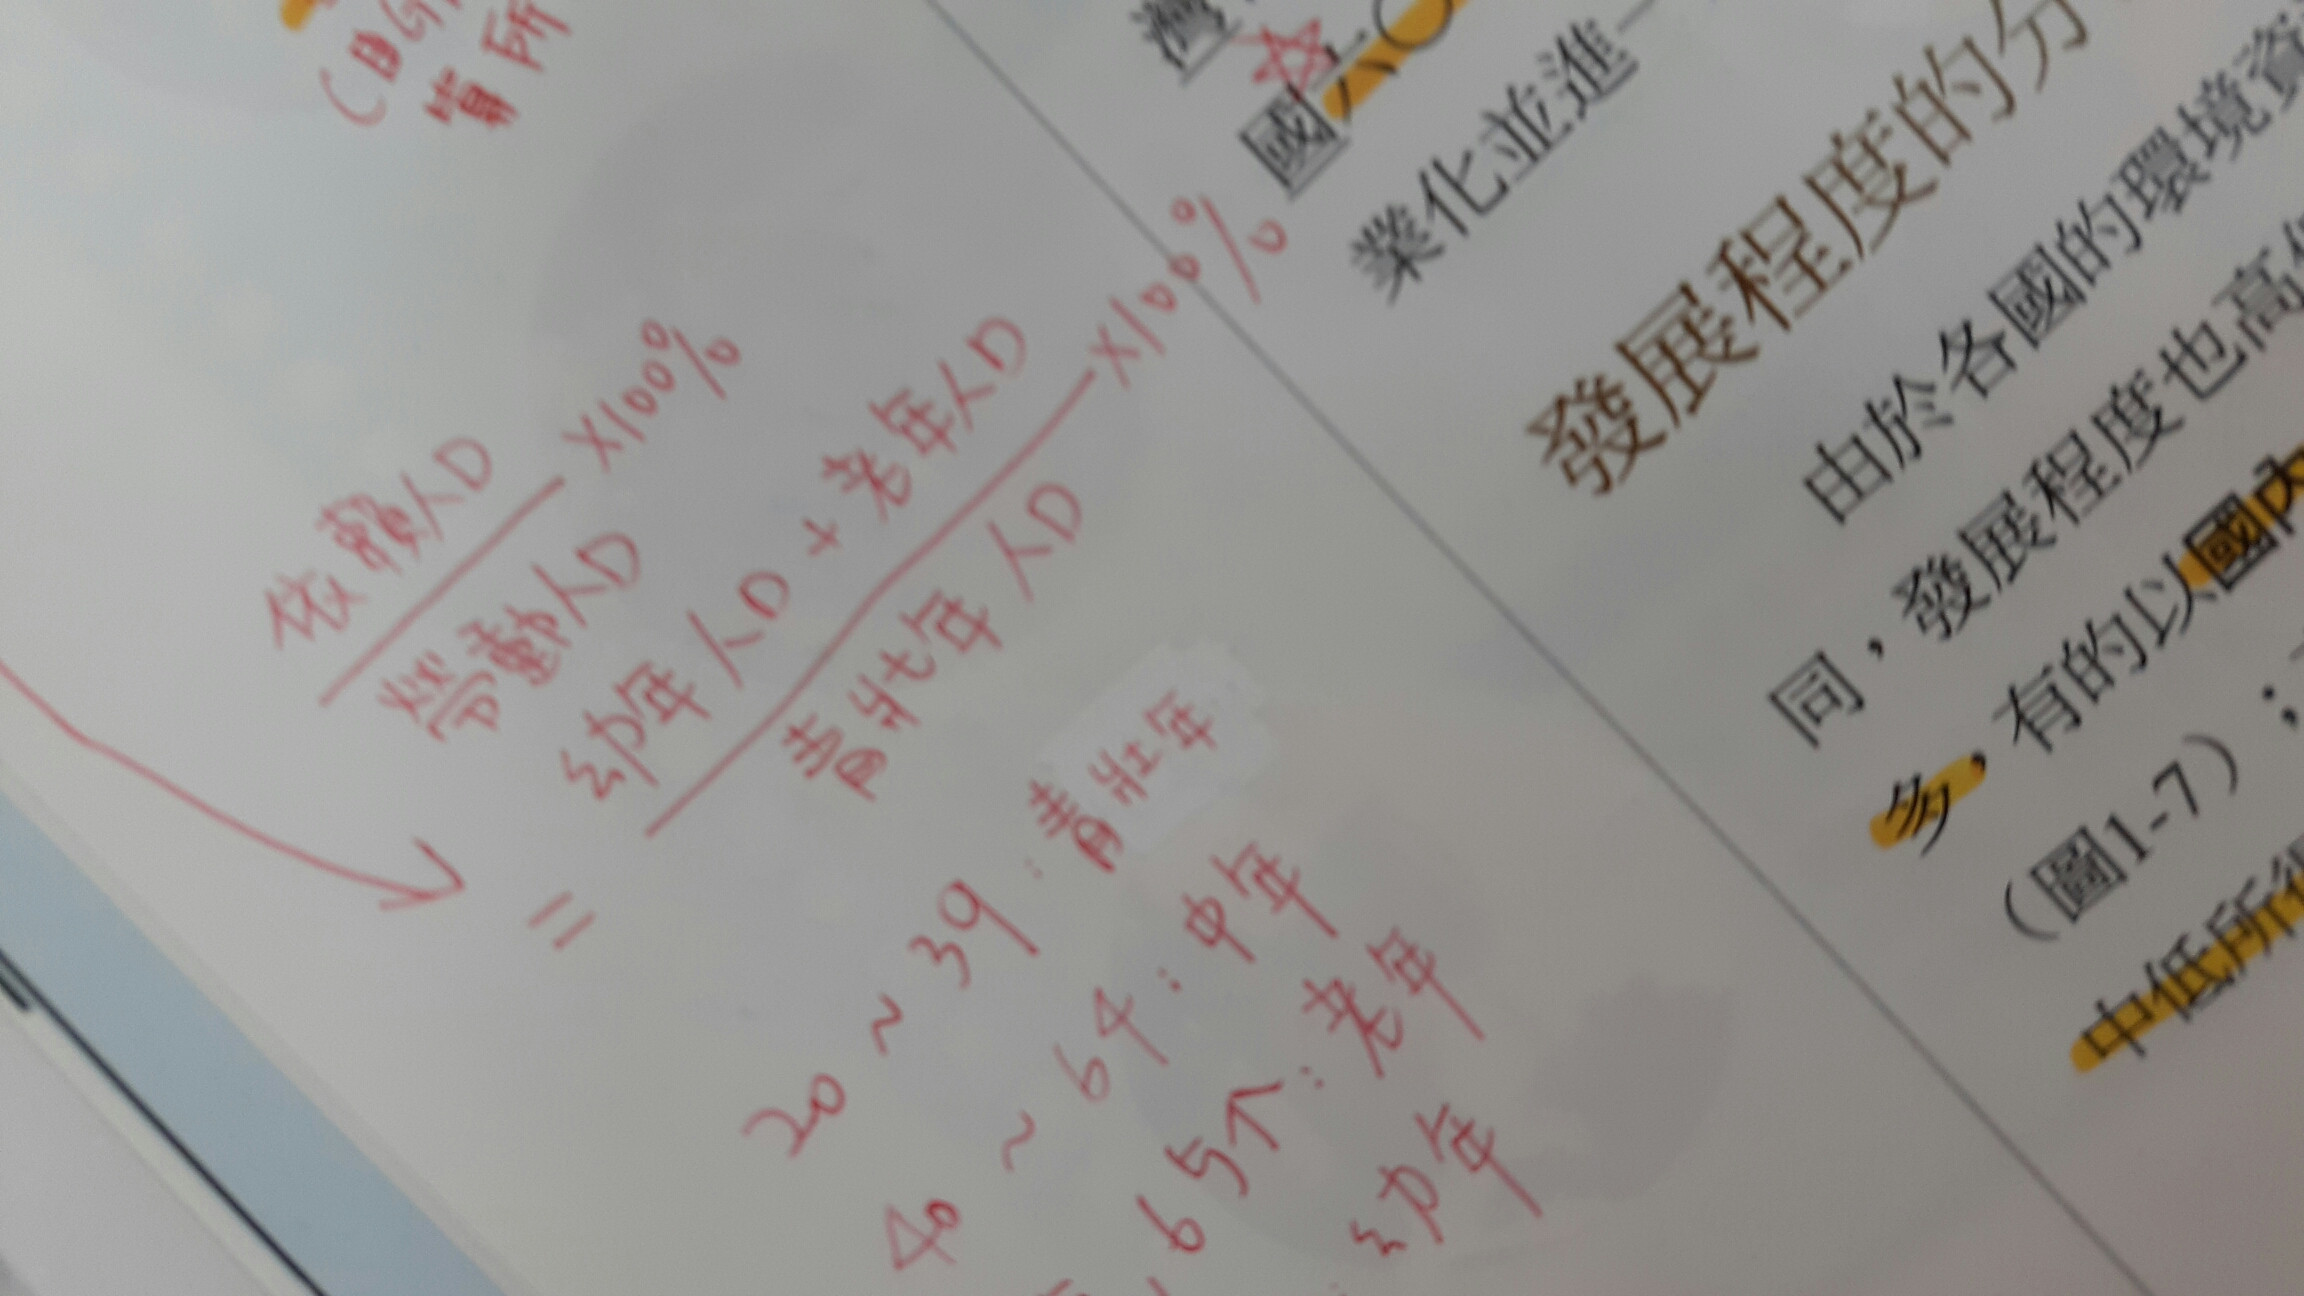 依賴人口
勞動人口
×100%
=
幼年人口+老年人口
青壯年人口
×100%
20~39:青壯年
40~64:中年
65个:老年
幼年
國六〇
業化並進一
發展程度的分
由於各國的環境資
同,發展程度也高
多,有的以國內
(圖1-7);
中低所得